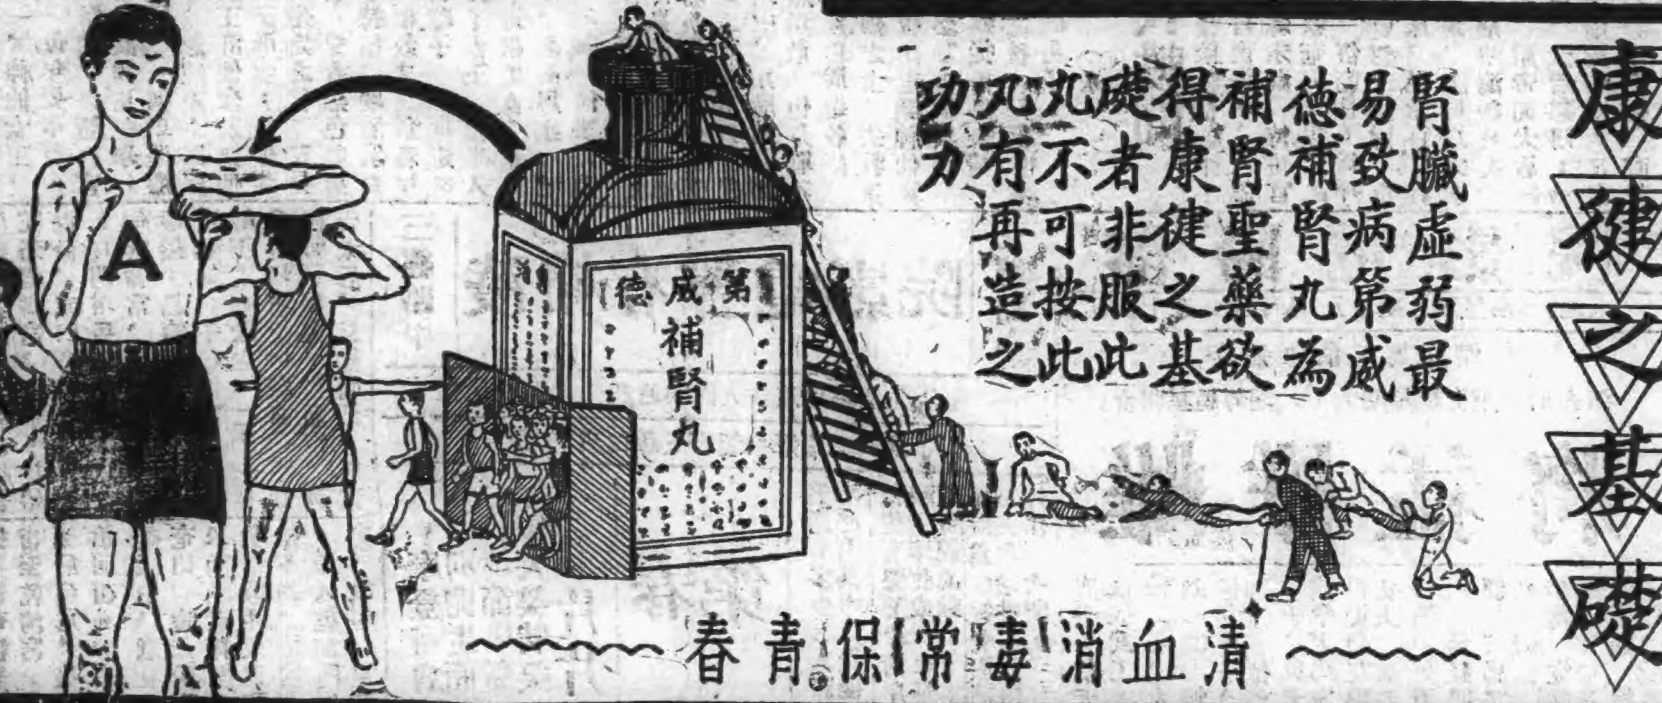 康徤之基礎
腎臟虛弱最
易致病第威
德補腎丸為
補腎聖藥欲
得康徤之基
礎者非服此
丸不可按此
丸有再造之
功力
第威德
補腎丸
A
清血消毒常保青春